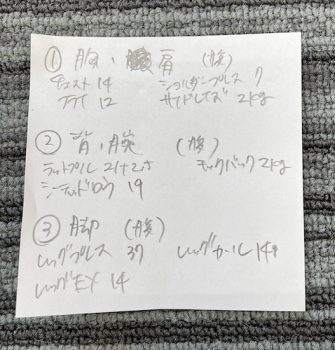 ① 胸、肩 (腹)
チェスト 14 ショルダープレス 7
フライ 12 サイドレイズ 2kg
② 背、腕 (腹)
ラットプル 21+2.5 キックバック 2kg
シーテッドロウ 19
③ 脚 (腹)
レッグプレス 37 レッグカール 14
レッグEX 14